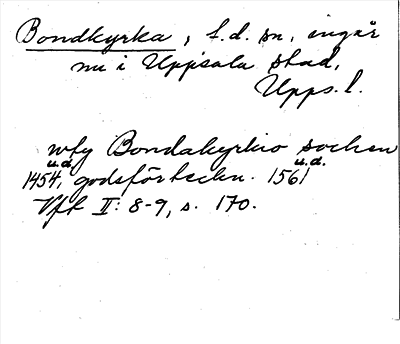 Bondkyrka, f.d. sn, ingår
nu i Uppsala stad,
Upps. l.
wfy Bondakyrkio sochen
u.d. u.d.
1454, godsförteckn. 1561
Vft II: 8-9, s. 170.